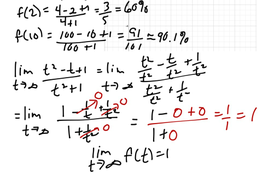 f(2) = (4-2+1)/(4+1) = 3/5 = 60%
f(10) = (100-10+1)/(100+1) = 91/101 ≈ 90.1%
lim t→∞ (t²-t+1)/(t²+1) = lim t→∞ (t²/t² - t/t² + 1/t²)/(t²/t² + 1/t²)
= lim t→∞ (1 - 1/t + 1/t²)/(1 + 1/t²) 0 0 0 = (1 - 0 + 0)/(1 + 0) = 1/1 = 1
lim t→∞ f(t) = 1